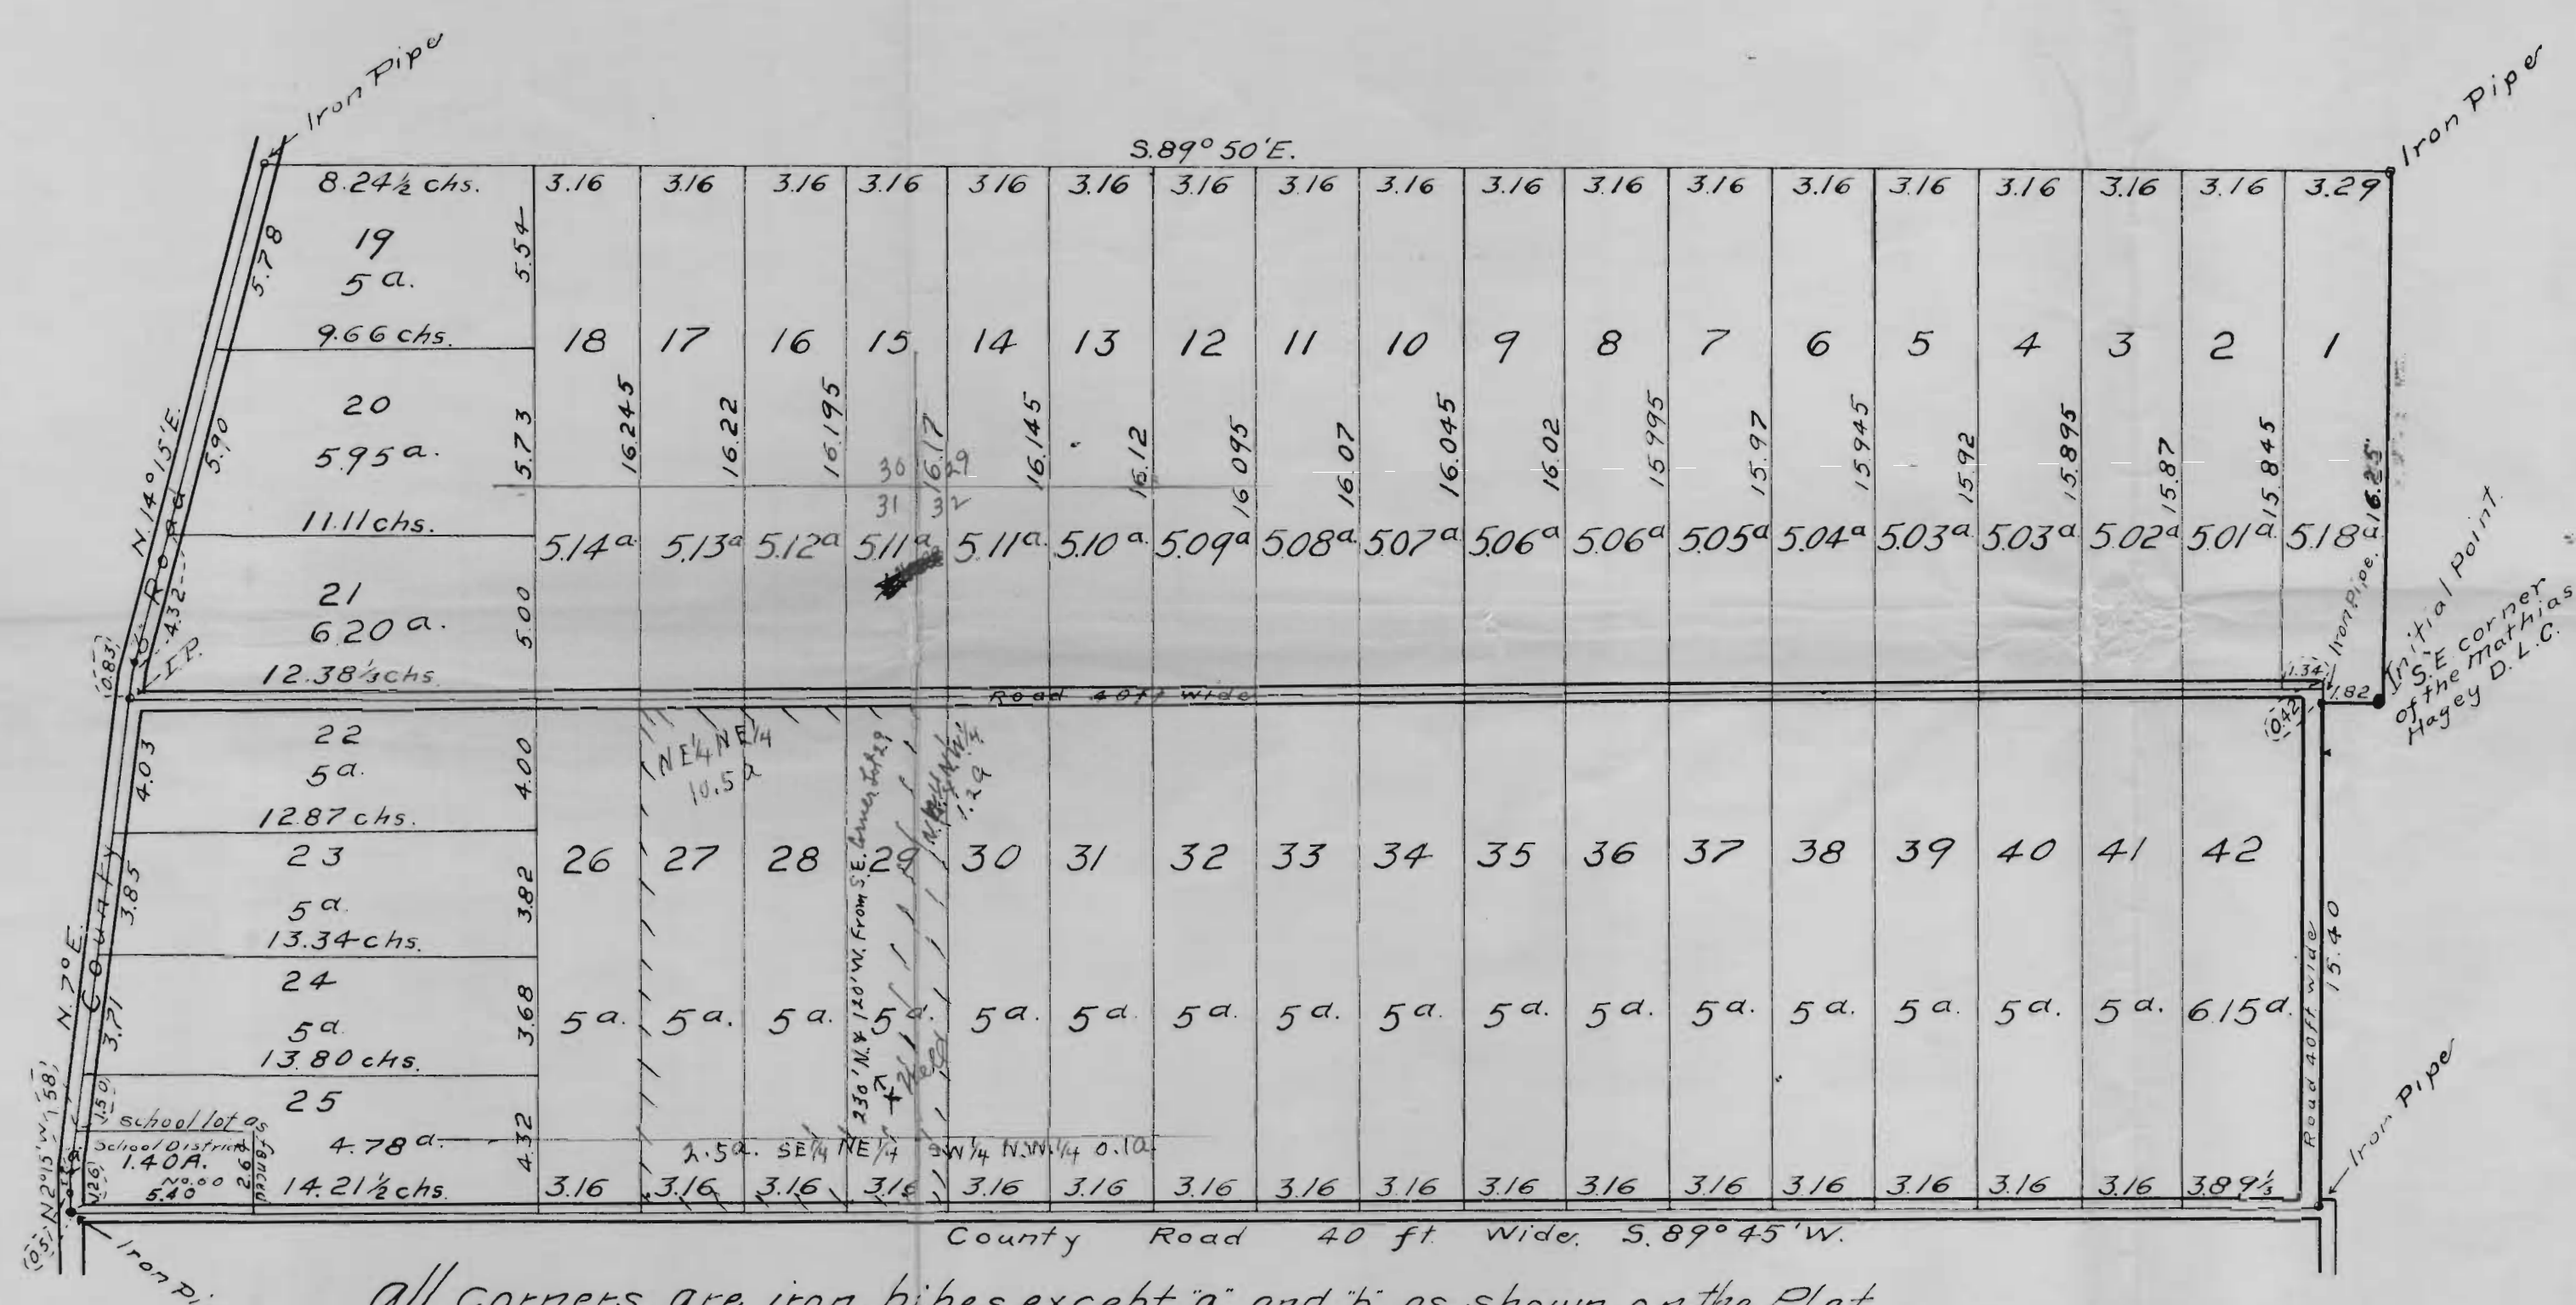 Iron Pipe
Iron Pipe
S.89° 50' E.
8.24½ chs. 3.16 3.16 3.16 3.16 3.16 3.16 3.16 3.16 3.16 3.16 3.16 3.16 3.16 3.16 3.16 3.16 3.16 3.29
5.78
19
5 a.
5.54
9.66 chs.
18 17 16 15 14 13 12 11 10 9 8 7 6 5 4 3 2 1
N.14°15'E.
5.90
20
5.95 a.
5.73
16.245 16.22 16.195 16.17 16.145 16.12 16.095 16.07 16.045 16.02 15.995 15.97 15.945 15.92 15.895 15.87 15.845 16.25
30 29
31 32
11.11 chs.
5.14 a 5.13 a 5.12 a 5.11 a 5.11 a. 5.10 a. 5.09 a 5.08 a 5.07 a 5.06 a 5.06 a 5.05 a 5.04 a 5.03 a 5.03 a 5.02 a 5.01 a 5.18 a
County Road
4.32
21
6.20 a.
5.00
12.38⅓ chs.
0.83
I.P.
Road 40 ft wide
1.34
Iron Pipe.
1.82
0.42
Initial point
S.E. corner
of the Mathias
Hagey D.L.C.
4.03
22
5 a.
4.00
12.87 chs.
NE¼ NE¼
10.5 a
1.29
3.85
23
5 a.
3.82
13.34 chs.
26 27 28 29 30 31 32 33 34 35 36 37 38 39 40 41 42
230' N. & 120' W. From S.E. Corner Lot 29
N.7°E.
3.71
24
5 a.
3.68
13.80 chs.
5 a. 5 a. 5 a. 5 a. 5 a. 5 a. 5 a. 5 a. 5 a. 5 a. 5 a. 5 a. 5 a. 5 a. 5 a. 5 a. 6.15 a.
Road 40 ft wide
15.40
Iron Pipe
1.50
25
4.78 a.
4.32
School lot as
School District
1.40 A.
No. 60
5.40
2.62
fenced
1.26
14.21½ chs.
2.5 a. SE¼ NE¼ SW¼ N.W.¼ 0.1a
3.16 3.16 3.16 3.16 3.16 3.16 3.16 3.16 3.16 3.16 3.16 3.16 3.16 3.16 3.16 3.16 3.89⅓
N2°15'W 1.58
0.51
County Road 40 ft. Wide. S.89° 45' W.
Iron Pi
All corners are iron pipes except "a" and "b" as shown on the Plat